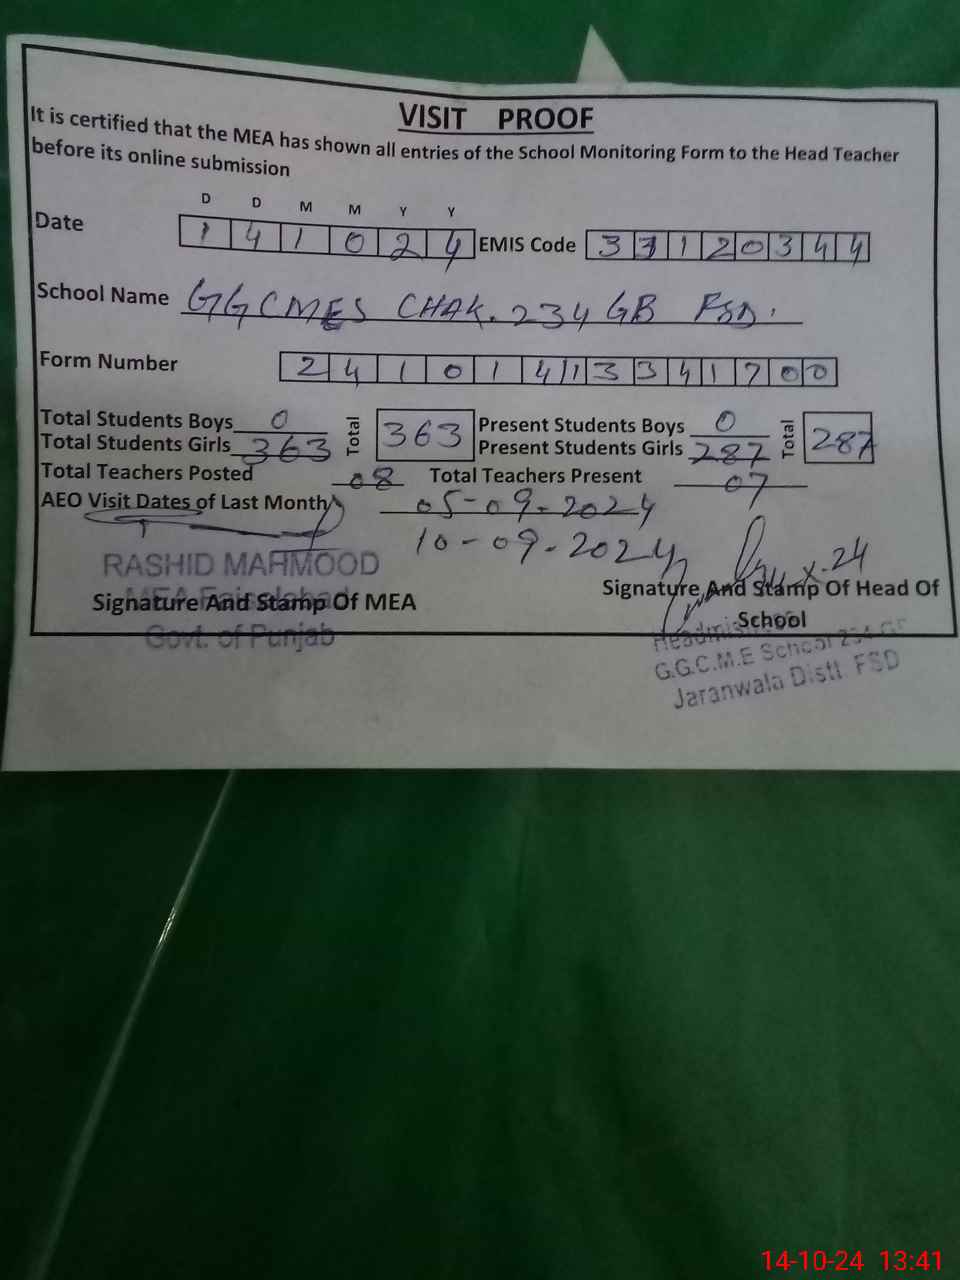 VISIT PROOF
It is certified that the MEA has shown all entries of the School Monitoring Form to the Head Teacher
before its online submission
D D M M Y Y
Date 1 4 1 0 2 4 EMIS Code 3 3 1 2 0 3 4 4
School Name GGCMES CHAK. 234 GB FSD.
Form Number 2 4 1 0 1 4 1 3 3 4 1 7 0 0
Total Students Boys 0 Total 363 Present Students Boys 0 Total 287
Total Students Girls 363 Present Students Girls 287
Total Teachers Posted 08 Total Teachers Present 07
AEO Visit Dates of Last Month 05-09-2024
10-09-2024
RASHID MAHMOOD
MEA Faisalabad
Govt. of Punjab
Signature And Stamp Of MEA
Signature And Stamp Of Head Of
School
Headmistress
G.G.C.M.E School 234 GB
Jaranwala Distt FSD
14-10-24 13:41